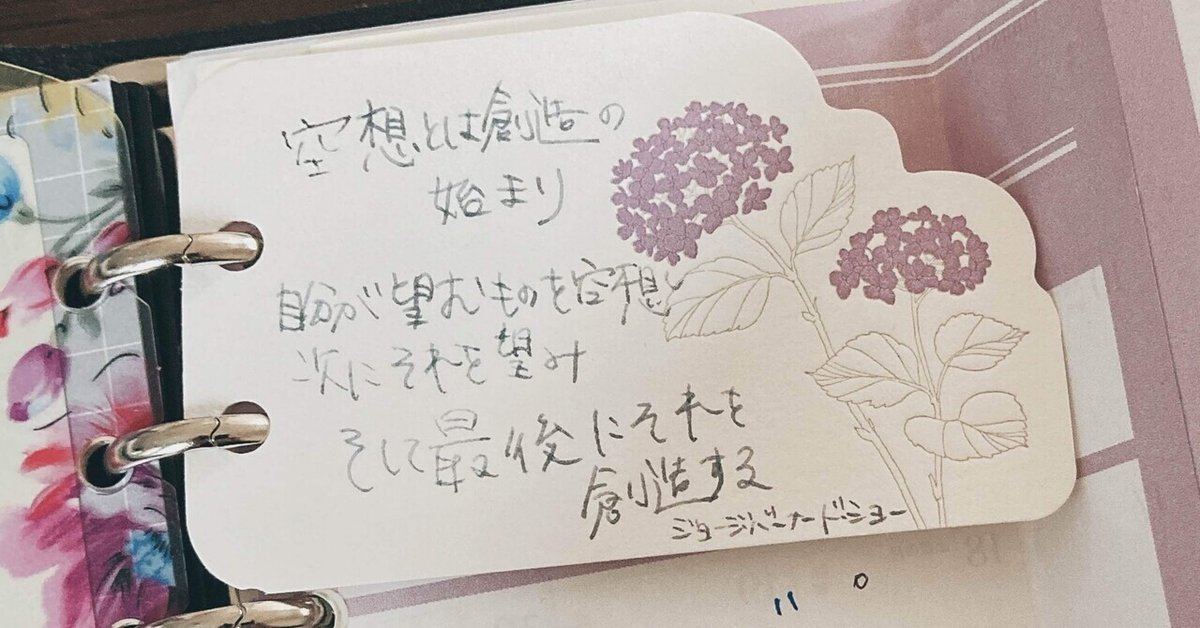 空想とは創造の
始まり
自分が望むものを空想し
次にそれを望み
そして最後にそれを
創造する
ジョージバーナード・ショー